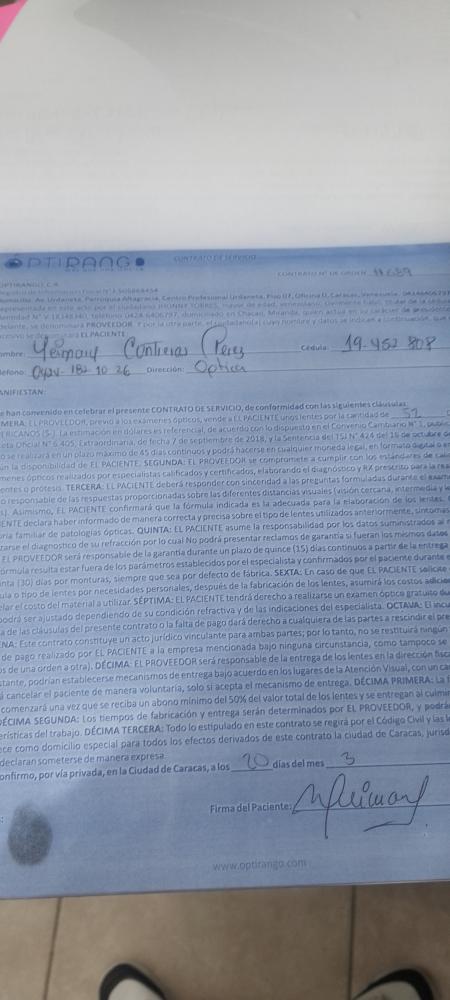 OPTIRANGO
CONTRATO DE SERVICIO
CONTRATO Nº DE ORDEN
OPTIRANGO, C.A
domicilio: Av. Urdaneta, Parroquia Altagracia, Centro Profesional Urdaneta, Piso 07, Oficina D, Caracas, Venezuela.
Yeimary Contreras (Perez Cédula: 19.452 808
léfono: 0424-182 10 26 Dirección: Optica
ANIFIESTAN:
e han convenido en celebrar el presente CONTRATO DE SERVICIO, de conformidad con las siguientes cláusulas:
MERA: EL PROVEEDOR, previo a los exámenes ópticos, vende a EL PACIENTE unos lentes por la cantidad de 52
ERICANOS ($-). La estimación en dólares es referencial, de acuerdo con lo dispuesto en el Convenio Cambiario N° 1, public
eta Oficial N° 6.405, Extraordinaria, de fecha 7 de septiembre de 2018, y la Sentencia del TSJ N° 424 del 16 de octubre d
o se realizará en un plazo máximo de 45 días continuos y podrá hacerse en cualquier moneda legal, en formato digital o e
ún la disponibilidad de EL PACIENTE. SEGUNDA: EL PROVEEDOR se compromete a cumplir con los estándares de cali
menes ópticos realizados por especialistas calificados y certificados, elaborando el diagnóstico y RX prescrito para la rea
entes o prótesis. TERCERA: EL PACIENTE deberá responder con sinceridad a las preguntas formuladas durante el exam
o responsable de las respuestas proporcionadas sobre las diferentes distancias visuales (visión cercana, intermedia y le
s). Asimismo, EL PACIENTE confirmará que la fórmula indicada es la adecuada para la elaboración de los lentes.
ENTE declara haber informado de manera correcta y precisa sobre el tipo de lentes utilizados anteriormente, síntomas
oria familiar de patologías ópticas. QUINTA: EL PACIENTE asume la responsabilidad por los datos suministrados al
zarse el diagnóstico de su refracción por lo cual No podrá presentar reclamos de garantía si fueran los mismos datos
EL PROVEEDOR será responsable de la garantía durante un plazo de quince (15) días continuos a partir de la entrega
órmula resulta estar fuera de los parámetros establecidos por el especialista y confirmados por el paciente durante e
inta (30) días por monturas, siempre que sea por defecto de fábrica. SEXTA: En caso de que EL PACIENTE solicite
ula o tipo de lentes por necesidades personales, después de la fabricación de los lentes, asumirá los costos adicion
elar el costo del material a utilizar. SÉPTIMA: EL PACIENTE tendrá derecho a realizarse un examen óptico gratuito du
podrá ser ajustado dependiendo de su condición refractiva y de las indicaciones del especialista. OCTAVA: El incu
a de las cláusulas del presente contrato o la falta de pago dará derecho a cualquiera de las partes a rescindir el pre
ENA: Este contrato constituye un acto jurídico vinculante para ambas partes; por lo tanto, no se restituirá ningún
de pago realizado por EL PACIENTE a la empresa mencionada bajo ninguna circunstancia, como tampoco se
os de una orden a otra). DÉCIMA: EL PROVEEDOR será responsable de la entrega de los lentes en la dirección fisca
tante, podrían establecerse mecanismos de entrega bajo acuerdo en los lugares de la Atención Visual, con un ca
á cancelar el paciente de manera voluntaria, solo si acepta el mecanismo de entrega. DÉCIMA PRIMERA: La f
comenzará una vez que se reciba un abono mínimo del 50% del valor total de los lentes y se entregan al culmin
DÉCIMA SEGUNDA: Los tiempos de fabricación y entrega serán determinados por EL PROVEEDOR, y podrá
erísticas del trabajo. DÉCIMA TERCERA: Todo lo estipulado en este contrato se regirá por el Código Civil y las l
ece como domicilio especial para todos los efectos derivados de este contrato la ciudad de Caracas, jurisd
declaran someterse de manera expresa.
onfirmo, por vía privada, en la Ciudad de Caracas, a los 20 días del mes 3
Firma del Paciente:
www.optirango.com